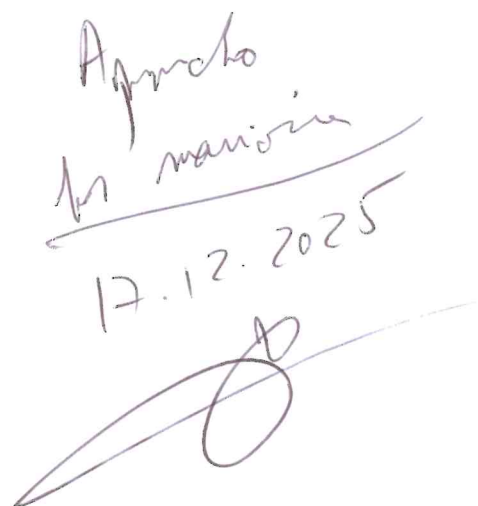 Aprovado
por maioria
17.12.2025